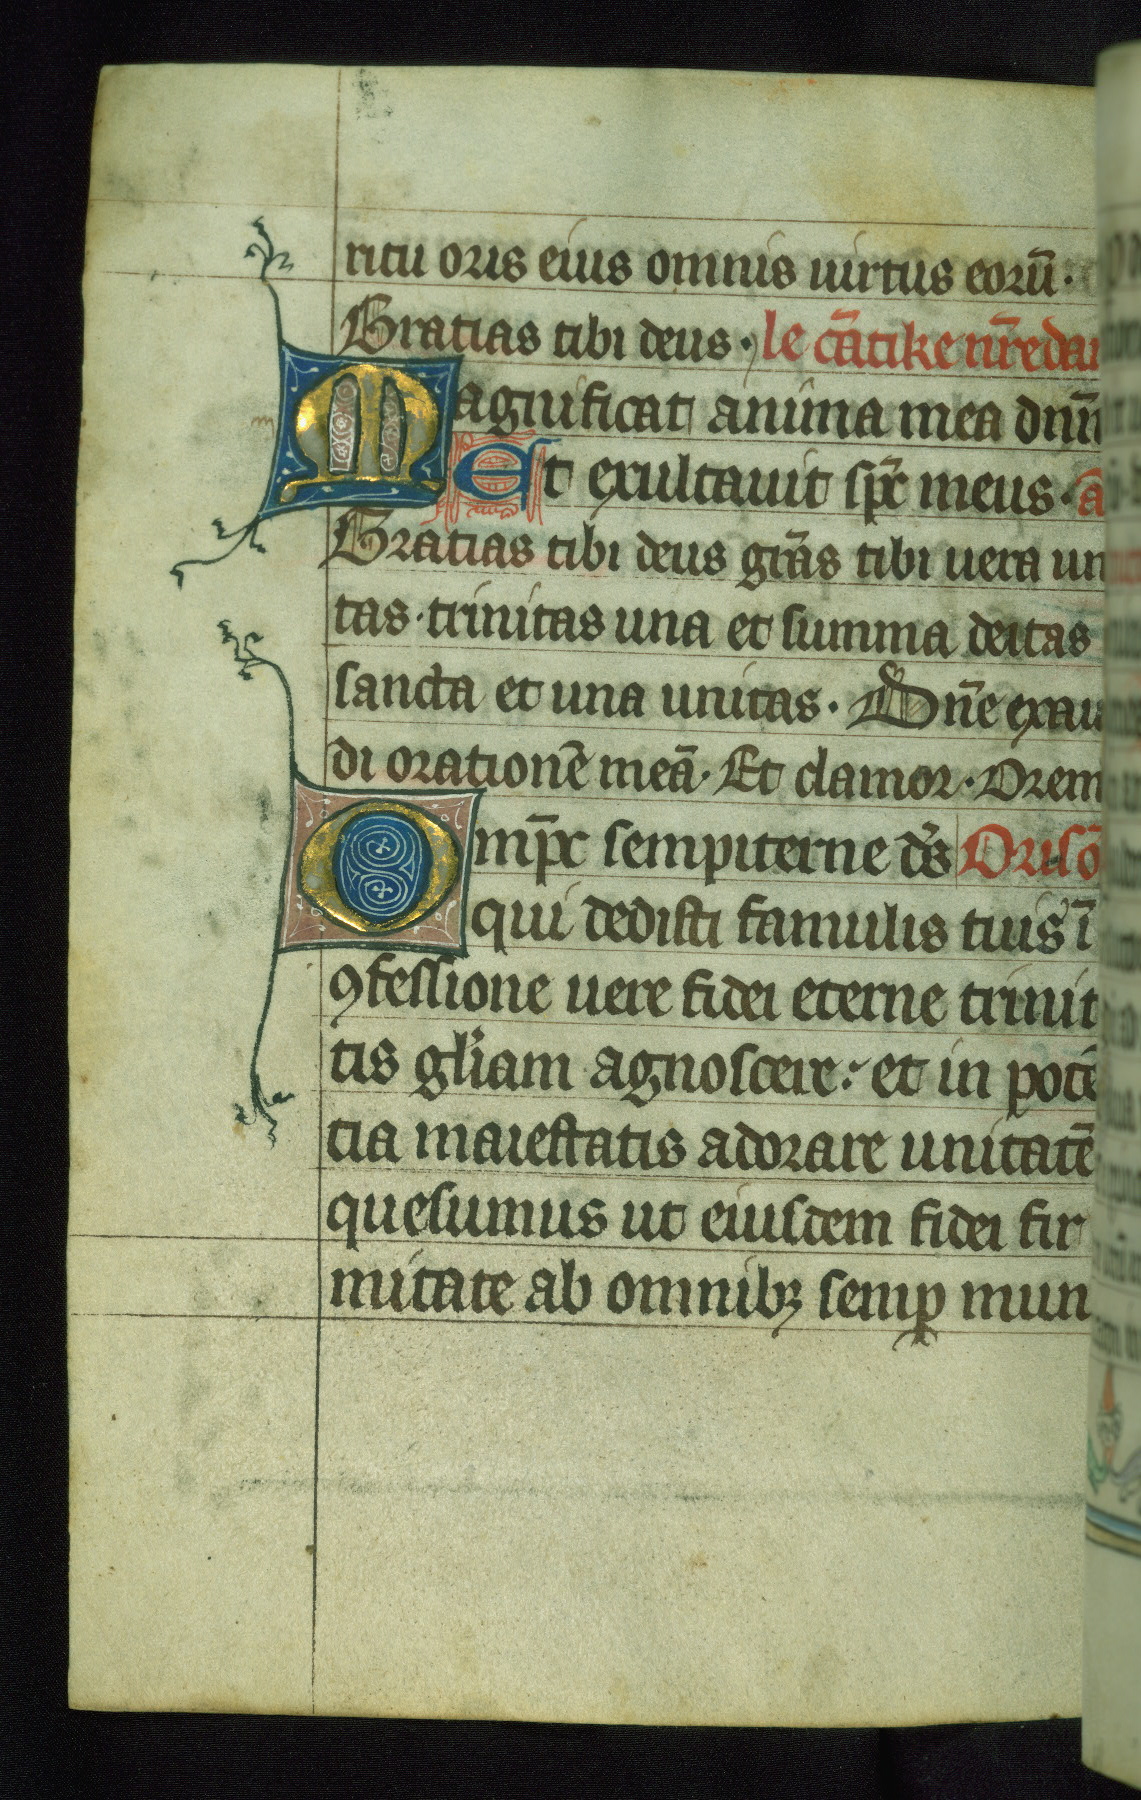 ritu oris eius omnis uirtus eorū·
Gratias tibi deus· le cātike nr̄e dai
Magnificat anima mea dn̄m
Et exultauit sp̄c meus· a
Gratias tibi deus grā̄s tibi uera un
tas·trinitas una et summa deitas
sancta et una unitas· Dn̄e exau
di orationē meā· Et clamor· Orem
Omp̄c sempiterne d̄s Orisō
qui dedisti famulis tuis ī
ꝯfessione uere fidei eterne trinit
tis gl̄iam agnoscere: et in potē
tia maiestatis adorare unitatē
quesumus ut eiusdem fidei fir
mitate ab omnibꝫ semꝑ mun